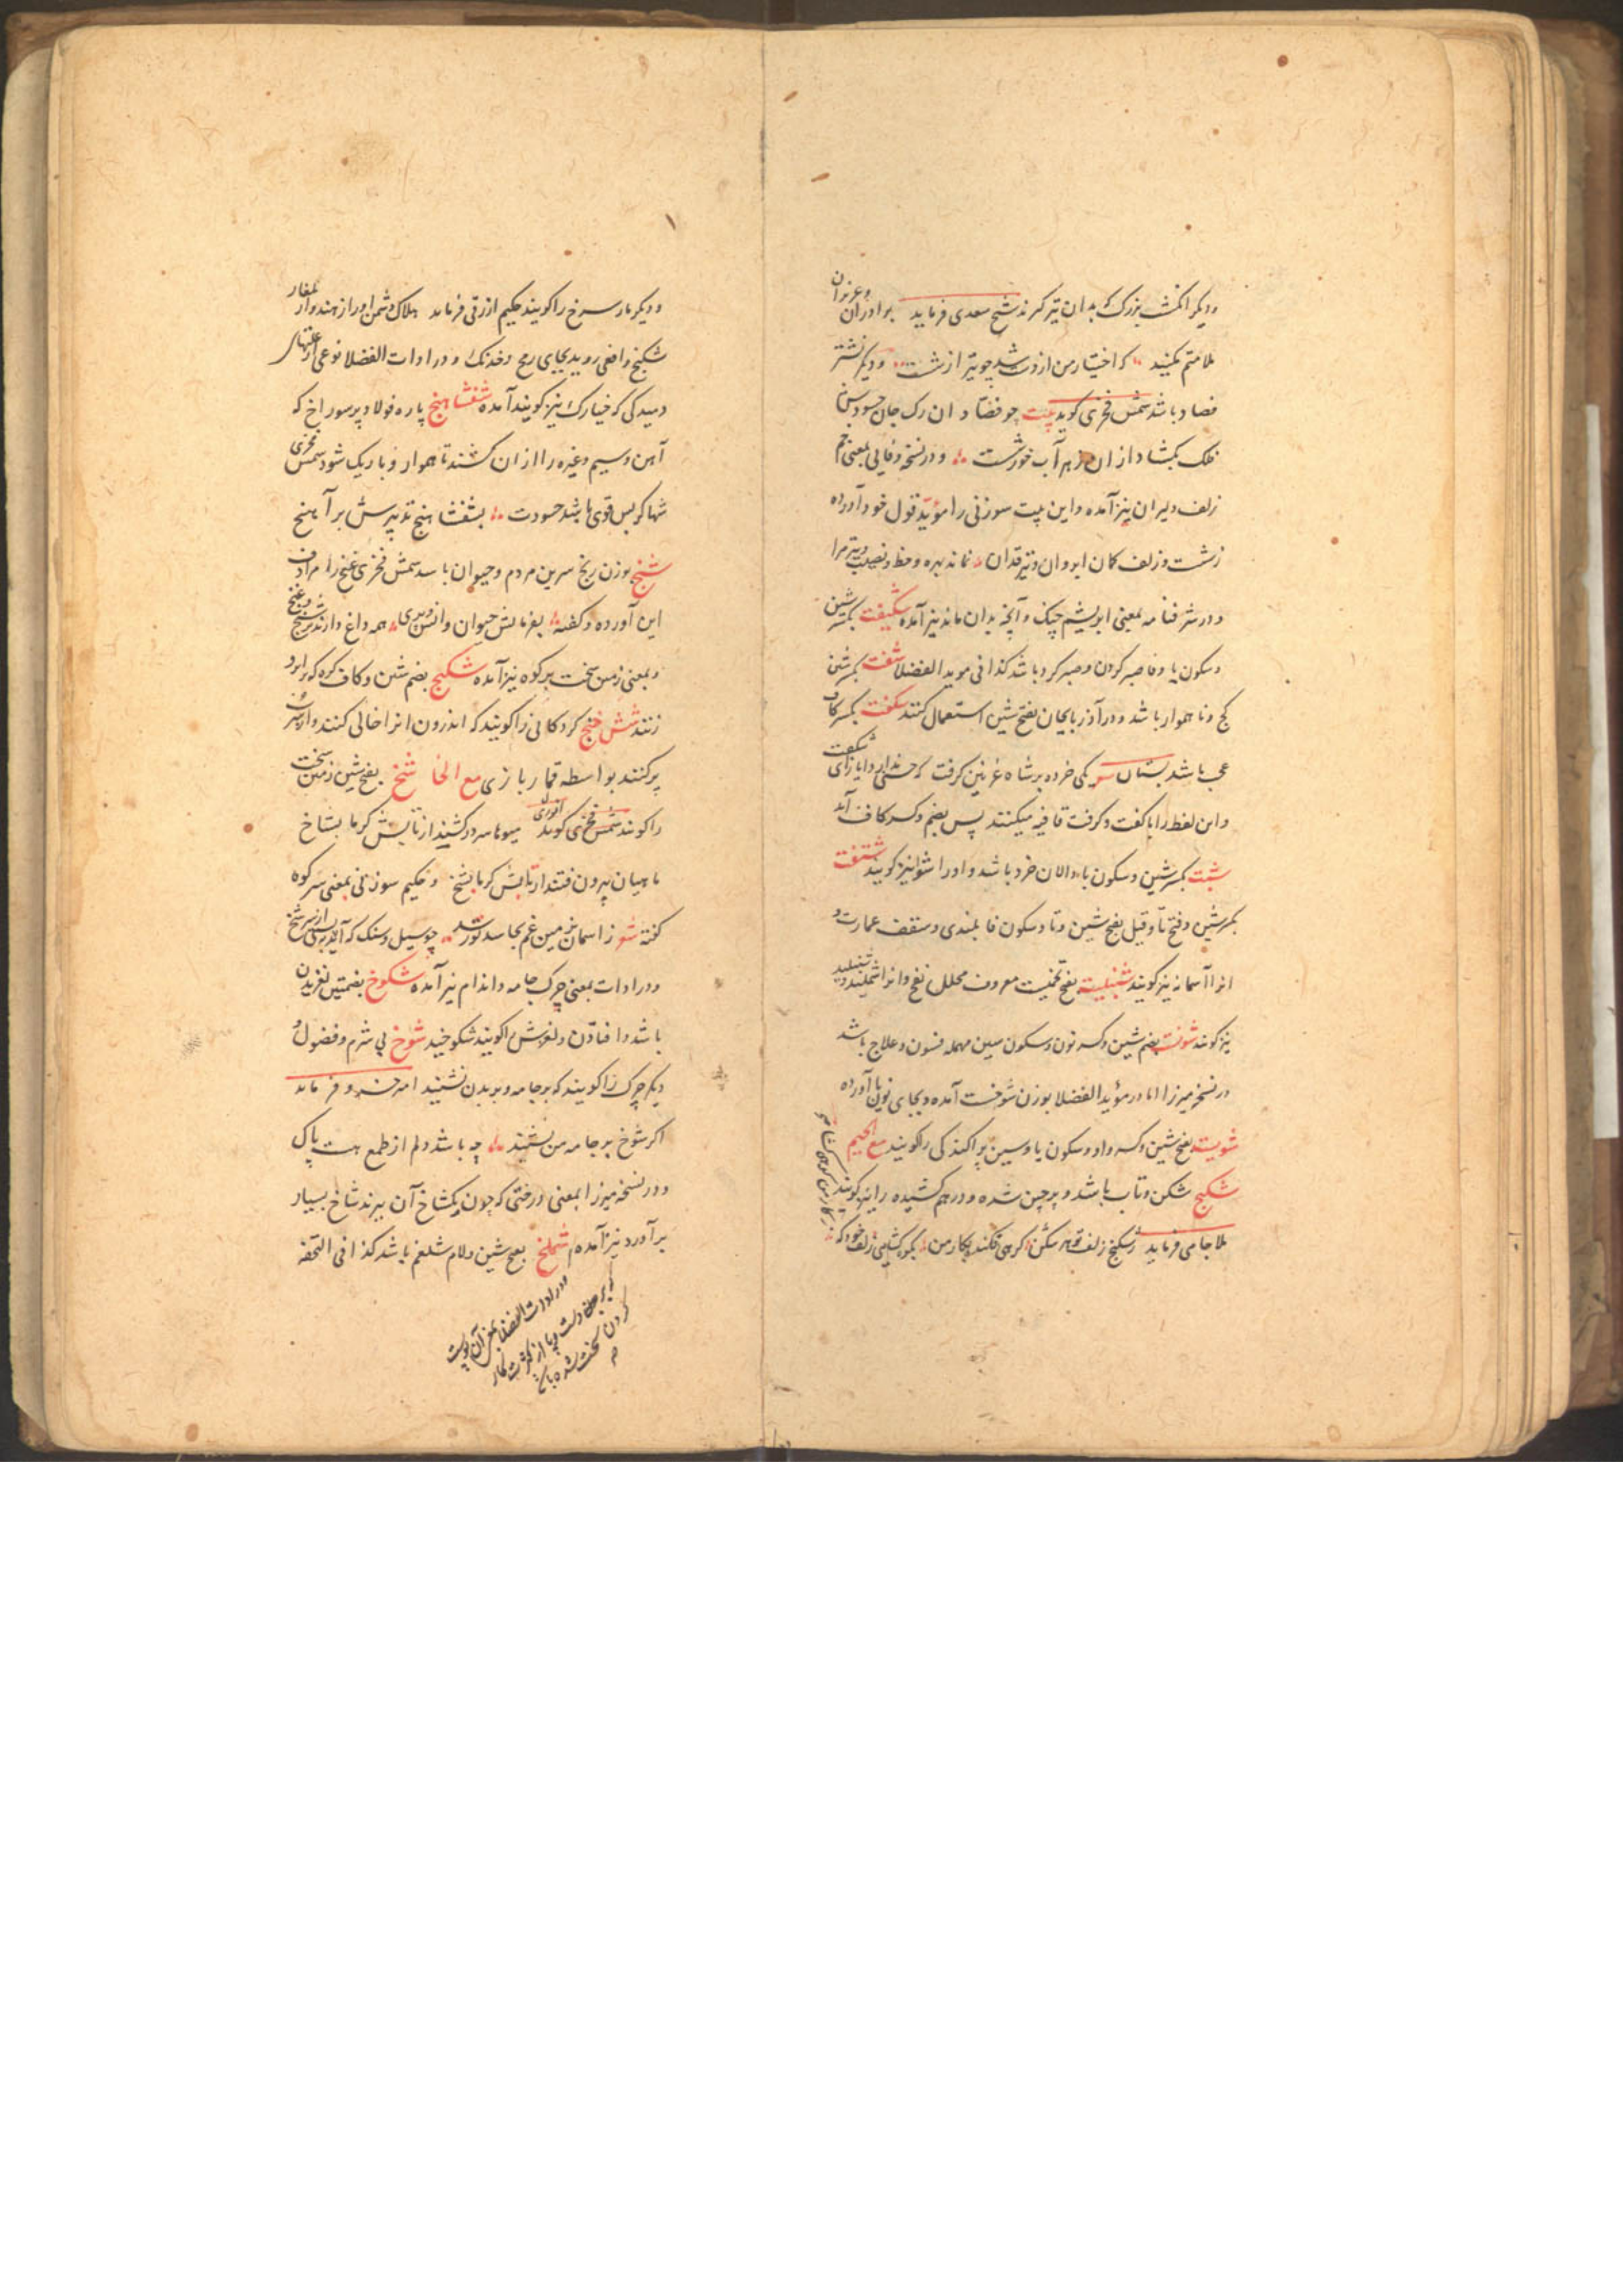 و دیکر انکشت بزرک که بدان تیر کیرند شیخ سعدی فرماید برادران و عزیزان
ملامتم مکنید که اختیار من از دست شد چو تیر از شست و دیکر نشتر
فصاد باشد شمس فخری کوید بیت چو فصاد ان رک جان حسودش
فلک بکشاد از ان زهر آب خوردست و در نسخه وفایی بمعنی خم
زلف دلبران نیز آمده و این بیت سوزنی را مؤید قول خود آورده
زشست و زلف کمان ابروان و تیر قدان نماند بهره و حظ و نصیب و تیر مرا
و در شرفنامه بمعنی ابریشم چنک و آنچه بدان ماند نیز آمده شکیفت بکسر شین
و سکون یا و فا صبر کردن و صبر کرد باشد کذا فی موید الفضلا شفت بکسر شین
کج و ناهموار باشد و در آذربایجان بفتح شین استعمال کنند شکفت بکسر کاف
عجب باشد بستان شعر یکی خرده بر شاه غزنین کرفت که حسنی ندارد ایاز ای شکفت
و این لفظ را با کفت و کرفت قافیه میکنند پس بضم و کسر کاف آمد
شبت بکسر شین و سکون با والان خرد باشد و او را شوا نیز کویند شتفت
بکسر شین و فتح تا و قیل بفتح شین و تا و سکون فا بلندی و سقف عمارت و
انرا آسمانه نیز کویند شنبلیت بفتح تخمیست معروف محلل نفخ و انرا شملید و شنبلید
نیز کویند شونست بضم شین و کسر نون و سکون سین مهمله فسون و علاج باشد
در نسخه میرزا اما در مؤید الفضلا بوزن شوخت آمده و بجای نون یا آورده
شویست بفتح شین و کسر واو و سکون یا و سین پراکندکی را کویند مع الجیم
شکنج شکن و تاب باشد و پرچین شده و درهم کشیده را نیز کویند
ملا جامی فرماید ز شکنج زلف تو هر شکن کرهی فکند بکار من بکره کشایی زلف خود که
ز کار من کرهی کشا
و دیکر مار سرخ را کویند حکیم ازرقی فرماید هلاک دشمن او را ز هند و از بلغار
شکنج و افعی روید بجای رمح و خدنک و در ادات الفضلا نوعی از علتهای
دمیدکی که خیارک نیز کویند آمده شفشاهنج پاره فولاد پر سوراخ که
آهن و سیم و غیره را از ان کشند تا هموار و باریک شود شمس فخری
شها کر بس قوی باشد حسودت بشفشاهنج تدبیرش برآهنج
شنج بوزن رنج سرین مردم و حیوان باشد شمس فخری غنج را مرادف
این آورده و کفته بفرمانش حیوان و انس و پری همه داغ دارند بر شنج و غنج
و بمعنی زمین سخت بر کوه نیز آمده شکنج بضم شین و کاف کره که بر ابرو
زنند شش خنج کردکانی را کویند که اندرون انرا خالی کنند و از سرب
پر کنند بواسطه قمار بازی مع الخا شخ بفتح شین زمین سخت
را کویند شمس فخری کوید میوها سر درکشند از تابش کرما بشاخ
ماهیان بیرون فتند از تابش کرما بشخ و حکیم سوزنی بمعنی سر کوه
کفته شعر ز اسمان بزمین غم بجاسد تو رسد چو سیل و سنک که آید بپستی از سر شخ
و در ادات بمعنی چرک جامه و اندام نیز آمده شکوخ بضمتین لغزیدن
باشد و افتادن و لغزش را کویند شکوخید شوخ بی شرم و فضول و
دیکر چرک را کویند که بر جامه و بر بدن نشیند امیر خسرو فرماید
اکر شوخ بر جامه من نشیند چه باشد دلم از طمع هست پاک
و در نسخه میرزا بمعنی درختی که چون یکشاخ آن ببرند شاخ بسیار
برآورد نیز آمده شملخ بفتح شین و لام شلغم باشد کذا فی التحفه
و در ادات الفضلا بمعنی آن پوست
که بر دست و پا از کثرت کار
کردن سخت شده باشد